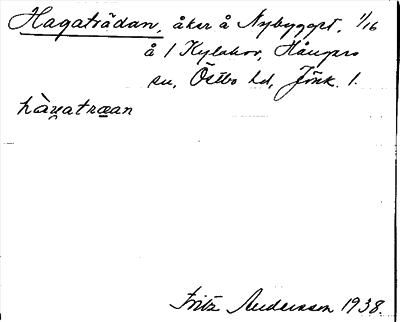 Hagaträdan, åker å Nybygget, 1/16
å 1 Kylahov, Hångers
sn, Östbo hd, Jönk. l.
hàgatræan
Fritz Andersson 1938.